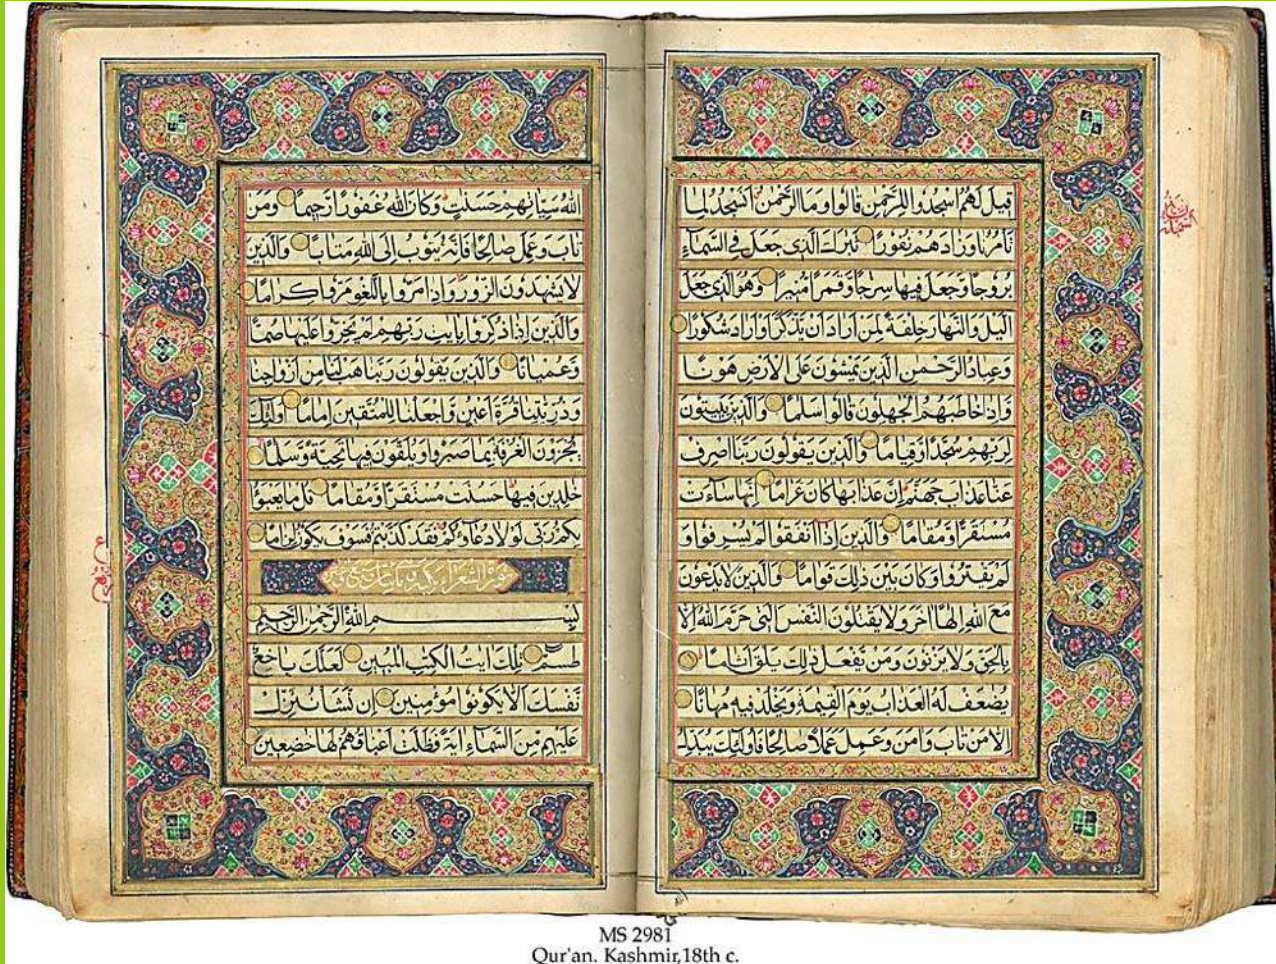 قِيلَ لَهُمُ اسْجُدُوا لِلرَّحْمٰنِ قَالُوا وَمَا الرَّحْمٰنُ اَنَسْجُدُ لِمَا
تَاْمُرُنَا وَزَادَهُمْ نُفُورًا تَبٰرَكَ الَّذِي جَعَلَ فِي السَّمَآءِ
بُرُوجًا وَجَعَلَ فِيهَا سِرٰجًا وَقَمَرًا مُنِيرًا وَهُوَ الَّذِي جَعَلَ
الَّيْلَ وَالنَّهَارَ خِلْفَةً لِمَنْ اَرَادَ اَنْ يَذَّكَّرَ اَوْ اَرَادَ شُكُورًا
وَعِبَادُ الرَّحْمٰنِ الَّذِينَ يَمْشُونَ عَلَى الْاَرْضِ هَوْنًا
وَاِذَا خَاطَبَهُمُ الْجٰهِلُونَ قَالُوا سَلٰمًا وَالَّذِينَ يَبِيتُونَ
لِرَبِّهِمْ سُجَّدًا وَقِيَامًا وَالَّذِينَ يَقُولُونَ رَبَّنَا اصْرِفْ
عَنَّا عَذَابَ جَهَنَّمَ اِنَّ عَذَابَهَا كَانَ غَرَامًا اِنَّهَا سَآءَتْ
مُسْتَقَرًّا وَمُقَامًا وَالَّذِينَ اِذَا اَنْفَقُوا لَمْ يُسْرِفُوا وَ
لَمْ يَقْتُرُوا وَكَانَ بَيْنَ ذٰلِكَ قَوَامًا وَالَّذِينَ لَا يَدْعُونَ
مَعَ اللّٰهِ اِلٰهًا اٰخَرَ وَلَا يَقْتُلُونَ النَّفْسَ الَّتِي حَرَّمَ اللّٰهُ اِلَّا
بِالْحَقِّ وَلَا يَزْنُونَ وَمَنْ يَفْعَلْ ذٰلِكَ يَلْقَ اَثَامًا
يُضٰعَفْ لَهُ الْعَذَابُ يَوْمَ الْقِيٰمَةِ وَيَخْلُدْ فِيهِ مُهَانًا
اِلَّا مَنْ تَابَ وَاٰمَنَ وَعَمِلَ عَمَلًا صَالِحًا فَاُولٰئِكَ يُبَدِّلُ
اللّٰهُ سَيِّاٰتِهِمْ حَسَنٰتٍ وَكَانَ اللّٰهُ غَفُورًا رَحِيمًا وَمَنْ
تَابَ وَعَمِلَ صَالِحًا فَاِنَّهُ يَتُوبُ اِلَى اللّٰهِ مَتَابًا وَالَّذِينَ
لَا يَشْهَدُونَ الزُّورَ وَاِذَا مَرُّوا بِاللَّغْوِ مَرُّوا كِرَامًا
وَالَّذِينَ اِذَا ذُكِّرُوا بِاٰيٰتِ رَبِّهِمْ لَمْ يَخِرُّوا عَلَيْهَا صُمًّا
وَعُمْيَانًا وَالَّذِينَ يَقُولُونَ رَبَّنَا هَبْ لَنَا مِنْ اَزْوَاجِنَا
وَذُرِّيّٰتِنَا قُرَّةَ اَعْيُنٍ وَاجْعَلْنَا لِلْمُتَّقِينَ اِمَامًا اُولٰئِكَ
يُجْزَوْنَ الْغُرْفَةَ بِمَا صَبَرُوا وَيُلَقَّوْنَ فِيهَا تَحِيَّةً وَسَلٰمًا
خٰلِدِينَ فِيهَا حَسُنَتْ مُسْتَقَرًّا وَمُقَامًا قُلْ مَا يَعْبَؤُا
بِكُمْ رَبِّي لَوْلَا دُعَآؤُكُمْ فَقَدْ كَذَّبْتُمْ فَسَوْفَ يَكُونُ لِزَامًا
بِسْمِ اللّٰهِ الرَّحْمٰنِ الرَّحِيمِ
طٰسٓمٓ تِلْكَ اٰيٰتُ الْكِتٰبِ الْمُبِينِ لَعَلَّكَ بَاخِعٌ
نَفْسَكَ اَلَّا يَكُونُوا مُؤْمِنِينَ اِنْ نَشَاْ نُنَزِّلْ
عَلَيْهِمْ مِنَ السَّمَآءِ اٰيَةً فَظَلَّتْ اَعْنَاقُهُمْ لَهَا خٰضِعِينَ
MS 2981
Qur'an. Kashmir,18th c.